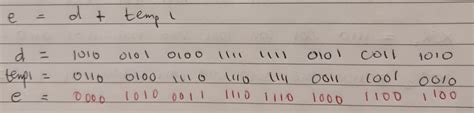 e = d + temp1
d = 1010 0101 0100 1111 1111 0101 0011 1010
temp1 = 0110 0100 1110 1110 111 0011 1001 0010
e = 0000 1010 0011 1110 1110 1000 1100 1100